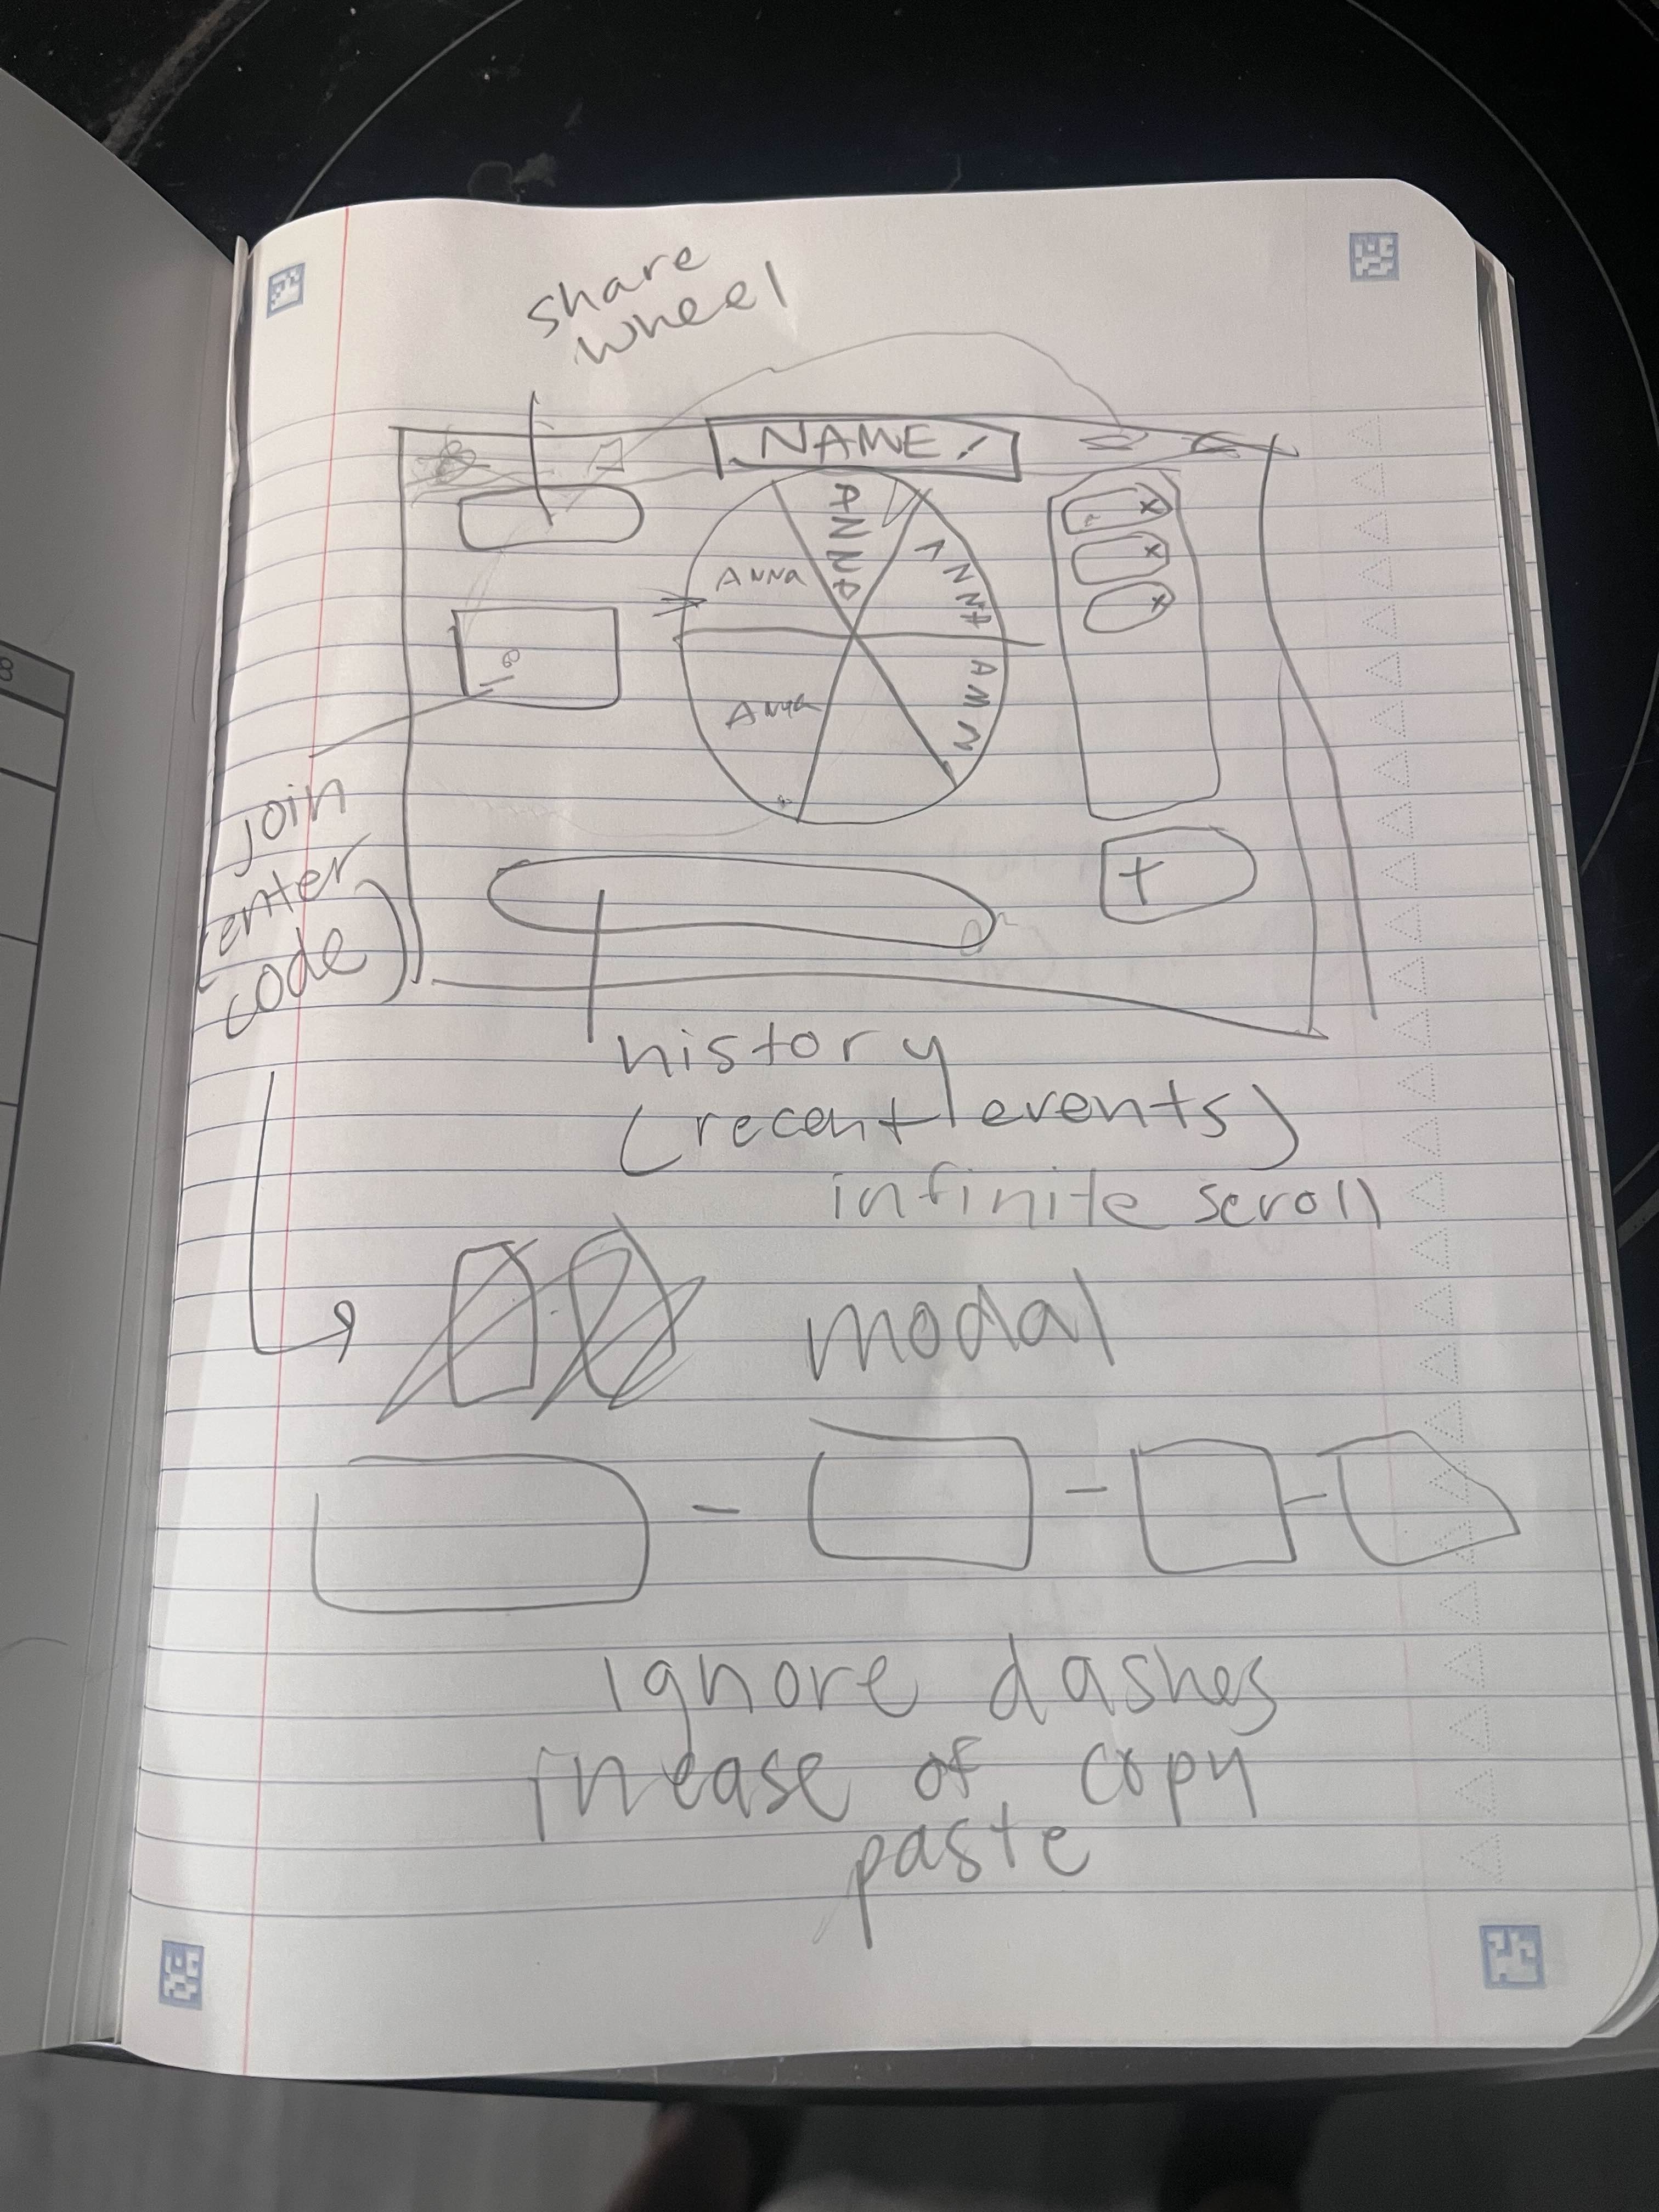 share
wheel
NAME
ANNA
ANNa
ANNA
x
x
x
AMN
Anya
+
join
(enter
code)
history
(recent events)
infinite scroll
modal
ignore dashes
in case of copy
paste
8